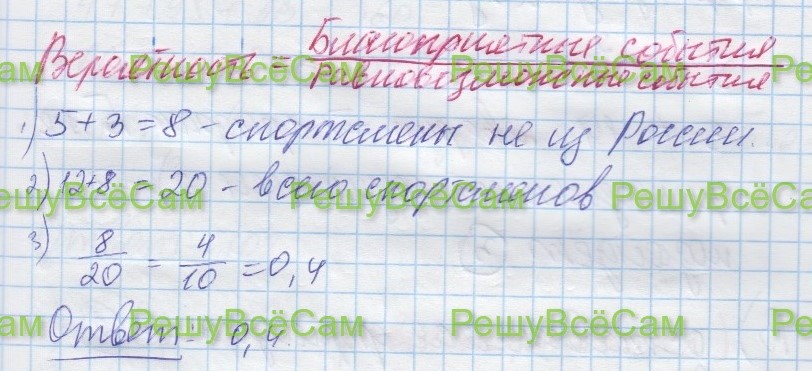 Вероятность = Благоприятные события
равновозможные события
1) 5+3=8 - спортсмены не из России.
2) 12+8 = 20 - всего спортсменов
3) 8/20 = 4/10 = 0,4
Ответ: 0,4.
РешуВсёСам РешуВсёСам
РешуВсёСам РешуВсёСам
РешуВсёСам РешуВсёСам